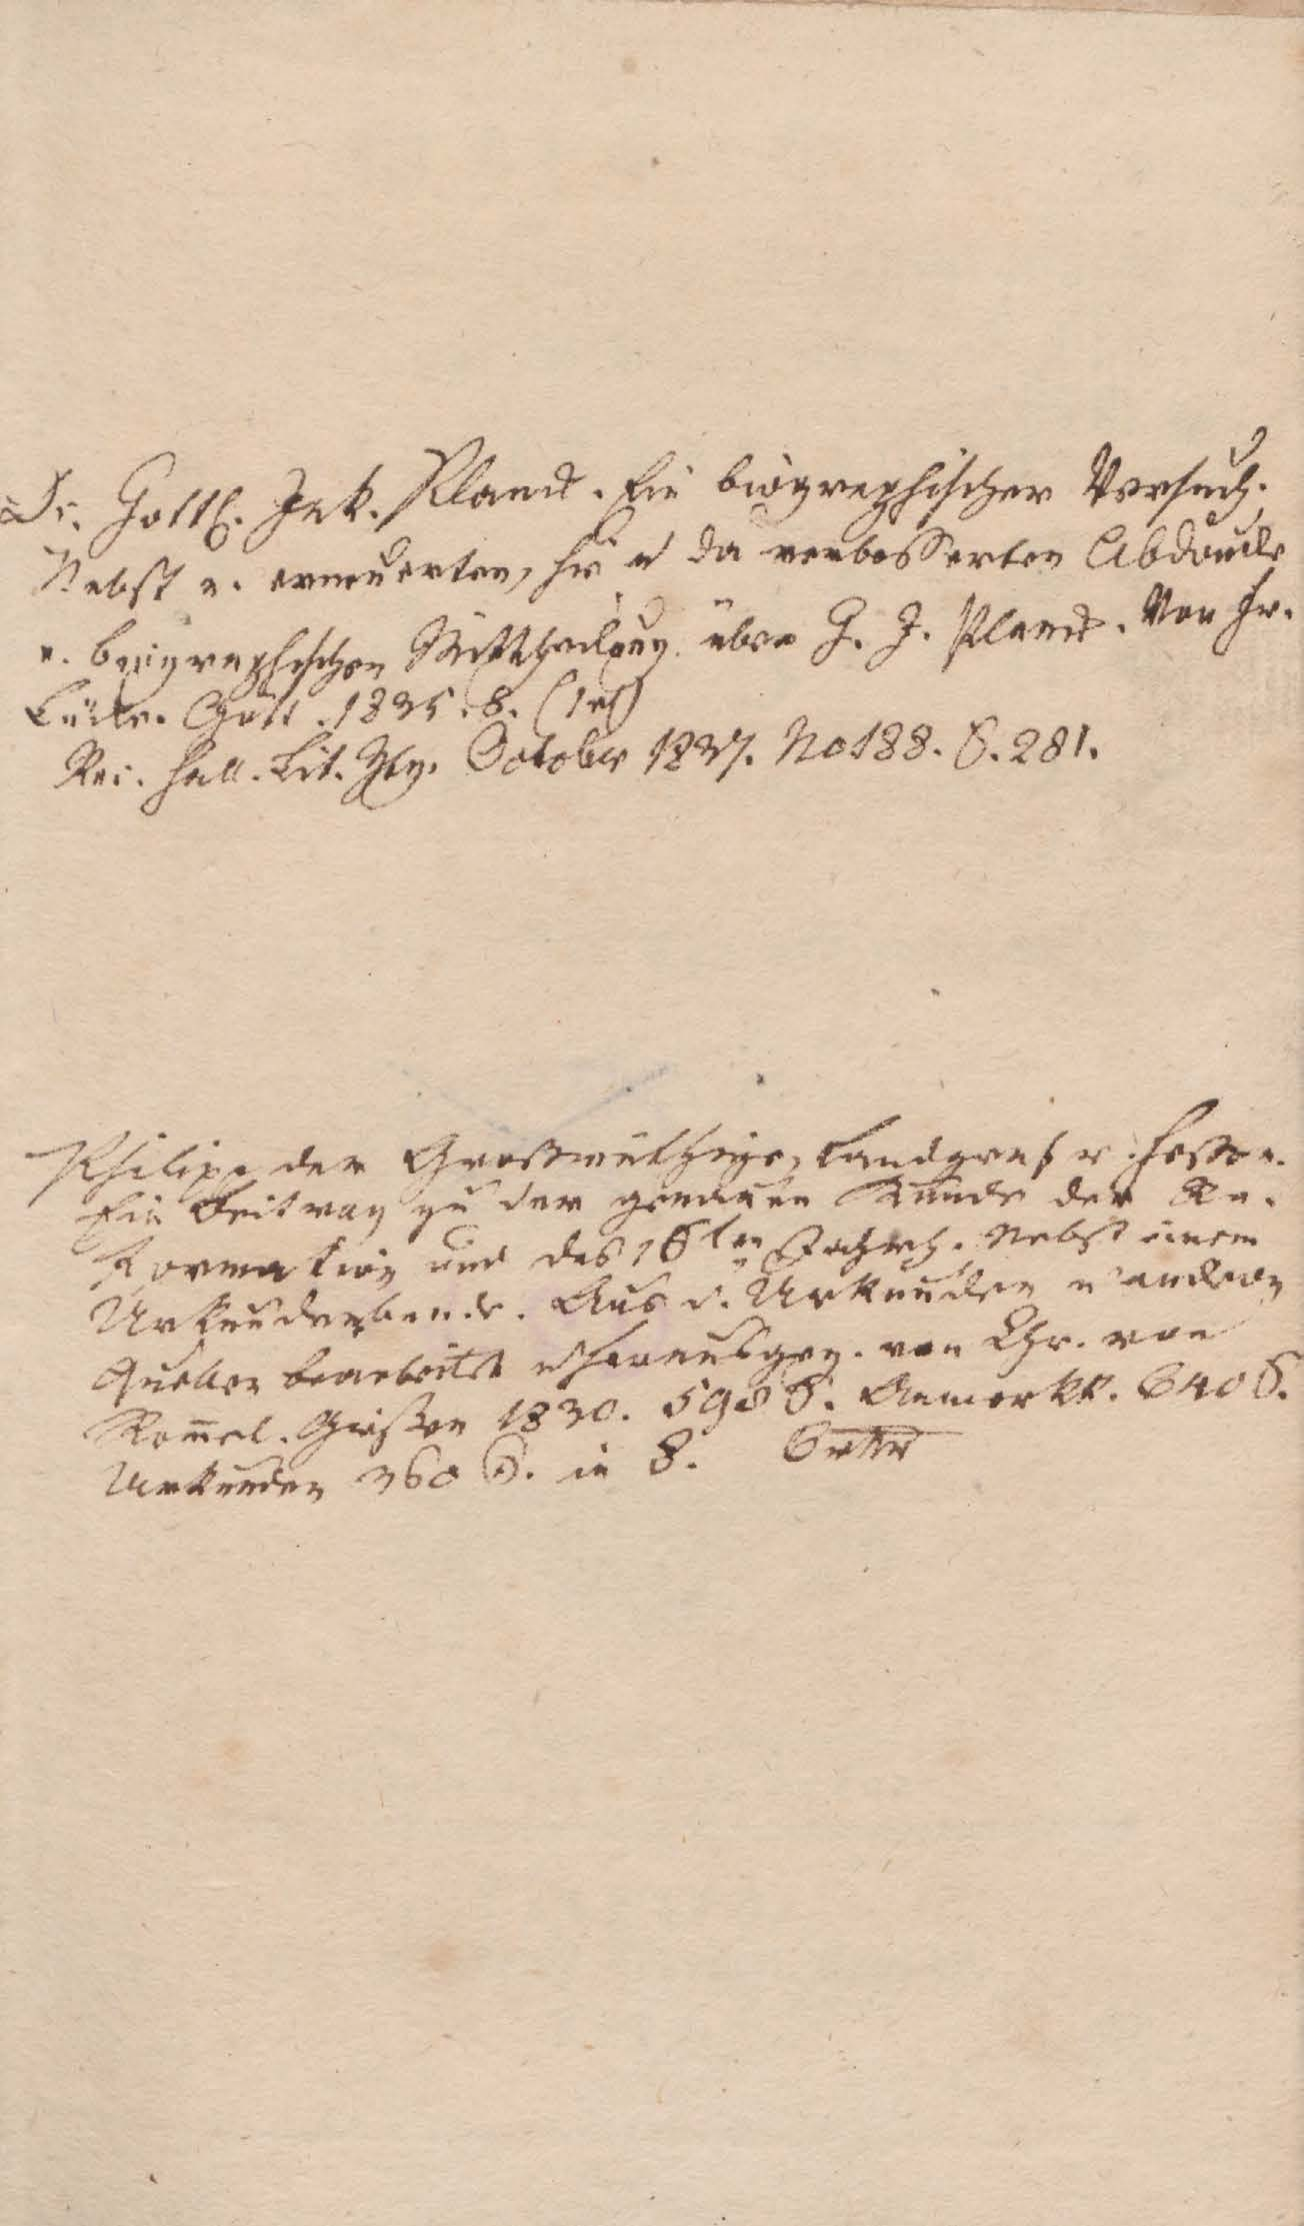 Dr. Gottl. Jak. Planck. Ein biographischer Versuch.
Nebst e. erneuerten, hie u da verbesserten Abdrucke
e. biographischen Mittheilung über H. L. Planck. Von Fr.
Lücke. Gött. 1835. 8.
Rec. Hall. Lit. Ztg. October 1837. No 188. S. 281.
Philipp der Großmüthige, Landgraf v. Hessen.
Ein Beitrag zu der genauen Kunde der Re-
formation und des 16ten Jahrh. Nebst einem
Urkundenbande. Aus d. Urkunden u andern
Quellen bearbeitet u herausgeg. von Chr. von
Rom̅el. Gießen 1830. 598 S. Anmerkk. 640 S.
Urkunden 360 S. in 8.